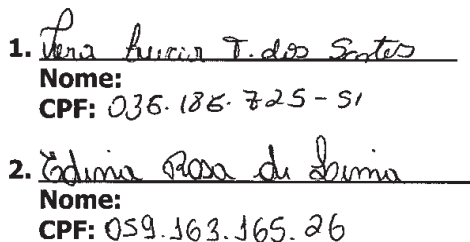 1. Vera Lucia T. dos Santos
Nome:
CPF: 036.186.725-51
2. Edima Rosa de Lima
Nome:
CPF: 059.163.165.26